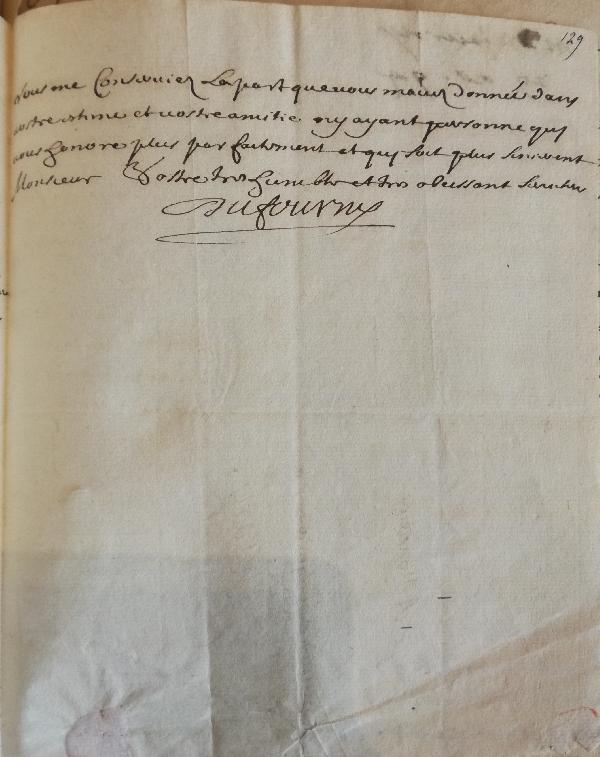 129
vous me Conserviez La part que vous mavez donnée dans
vostre estime et vostre amitie ny ayant personne qui
vous honore plus parfaitement et qui soit plus
Monsieur Vostre tres humble et tres obeissant serviteur
Dufourny